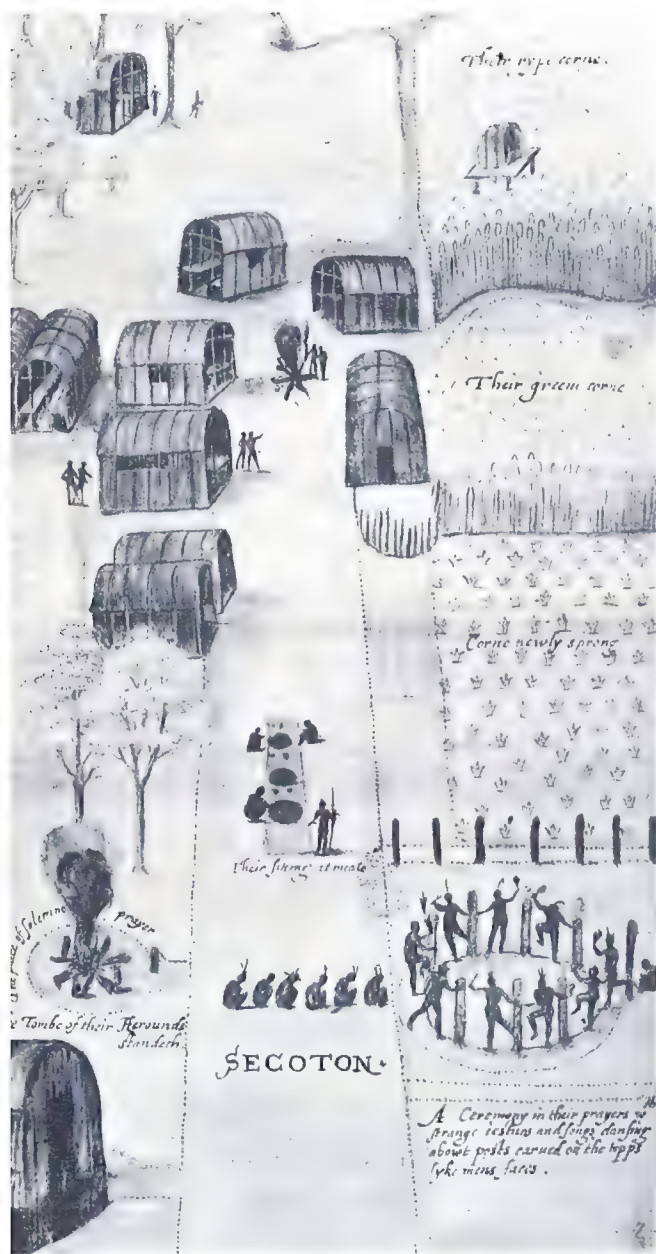 Their rype corne.
Their greene corne
Corne newly sprong
Their sitting at meate
The place of solemne prayer
Tombe of their Herounds
standeth.
SECOTON.
A Ceremony in their prayers
strange iesturs and songs dansing
abowt posts carued on the topps
lyke mens faces.